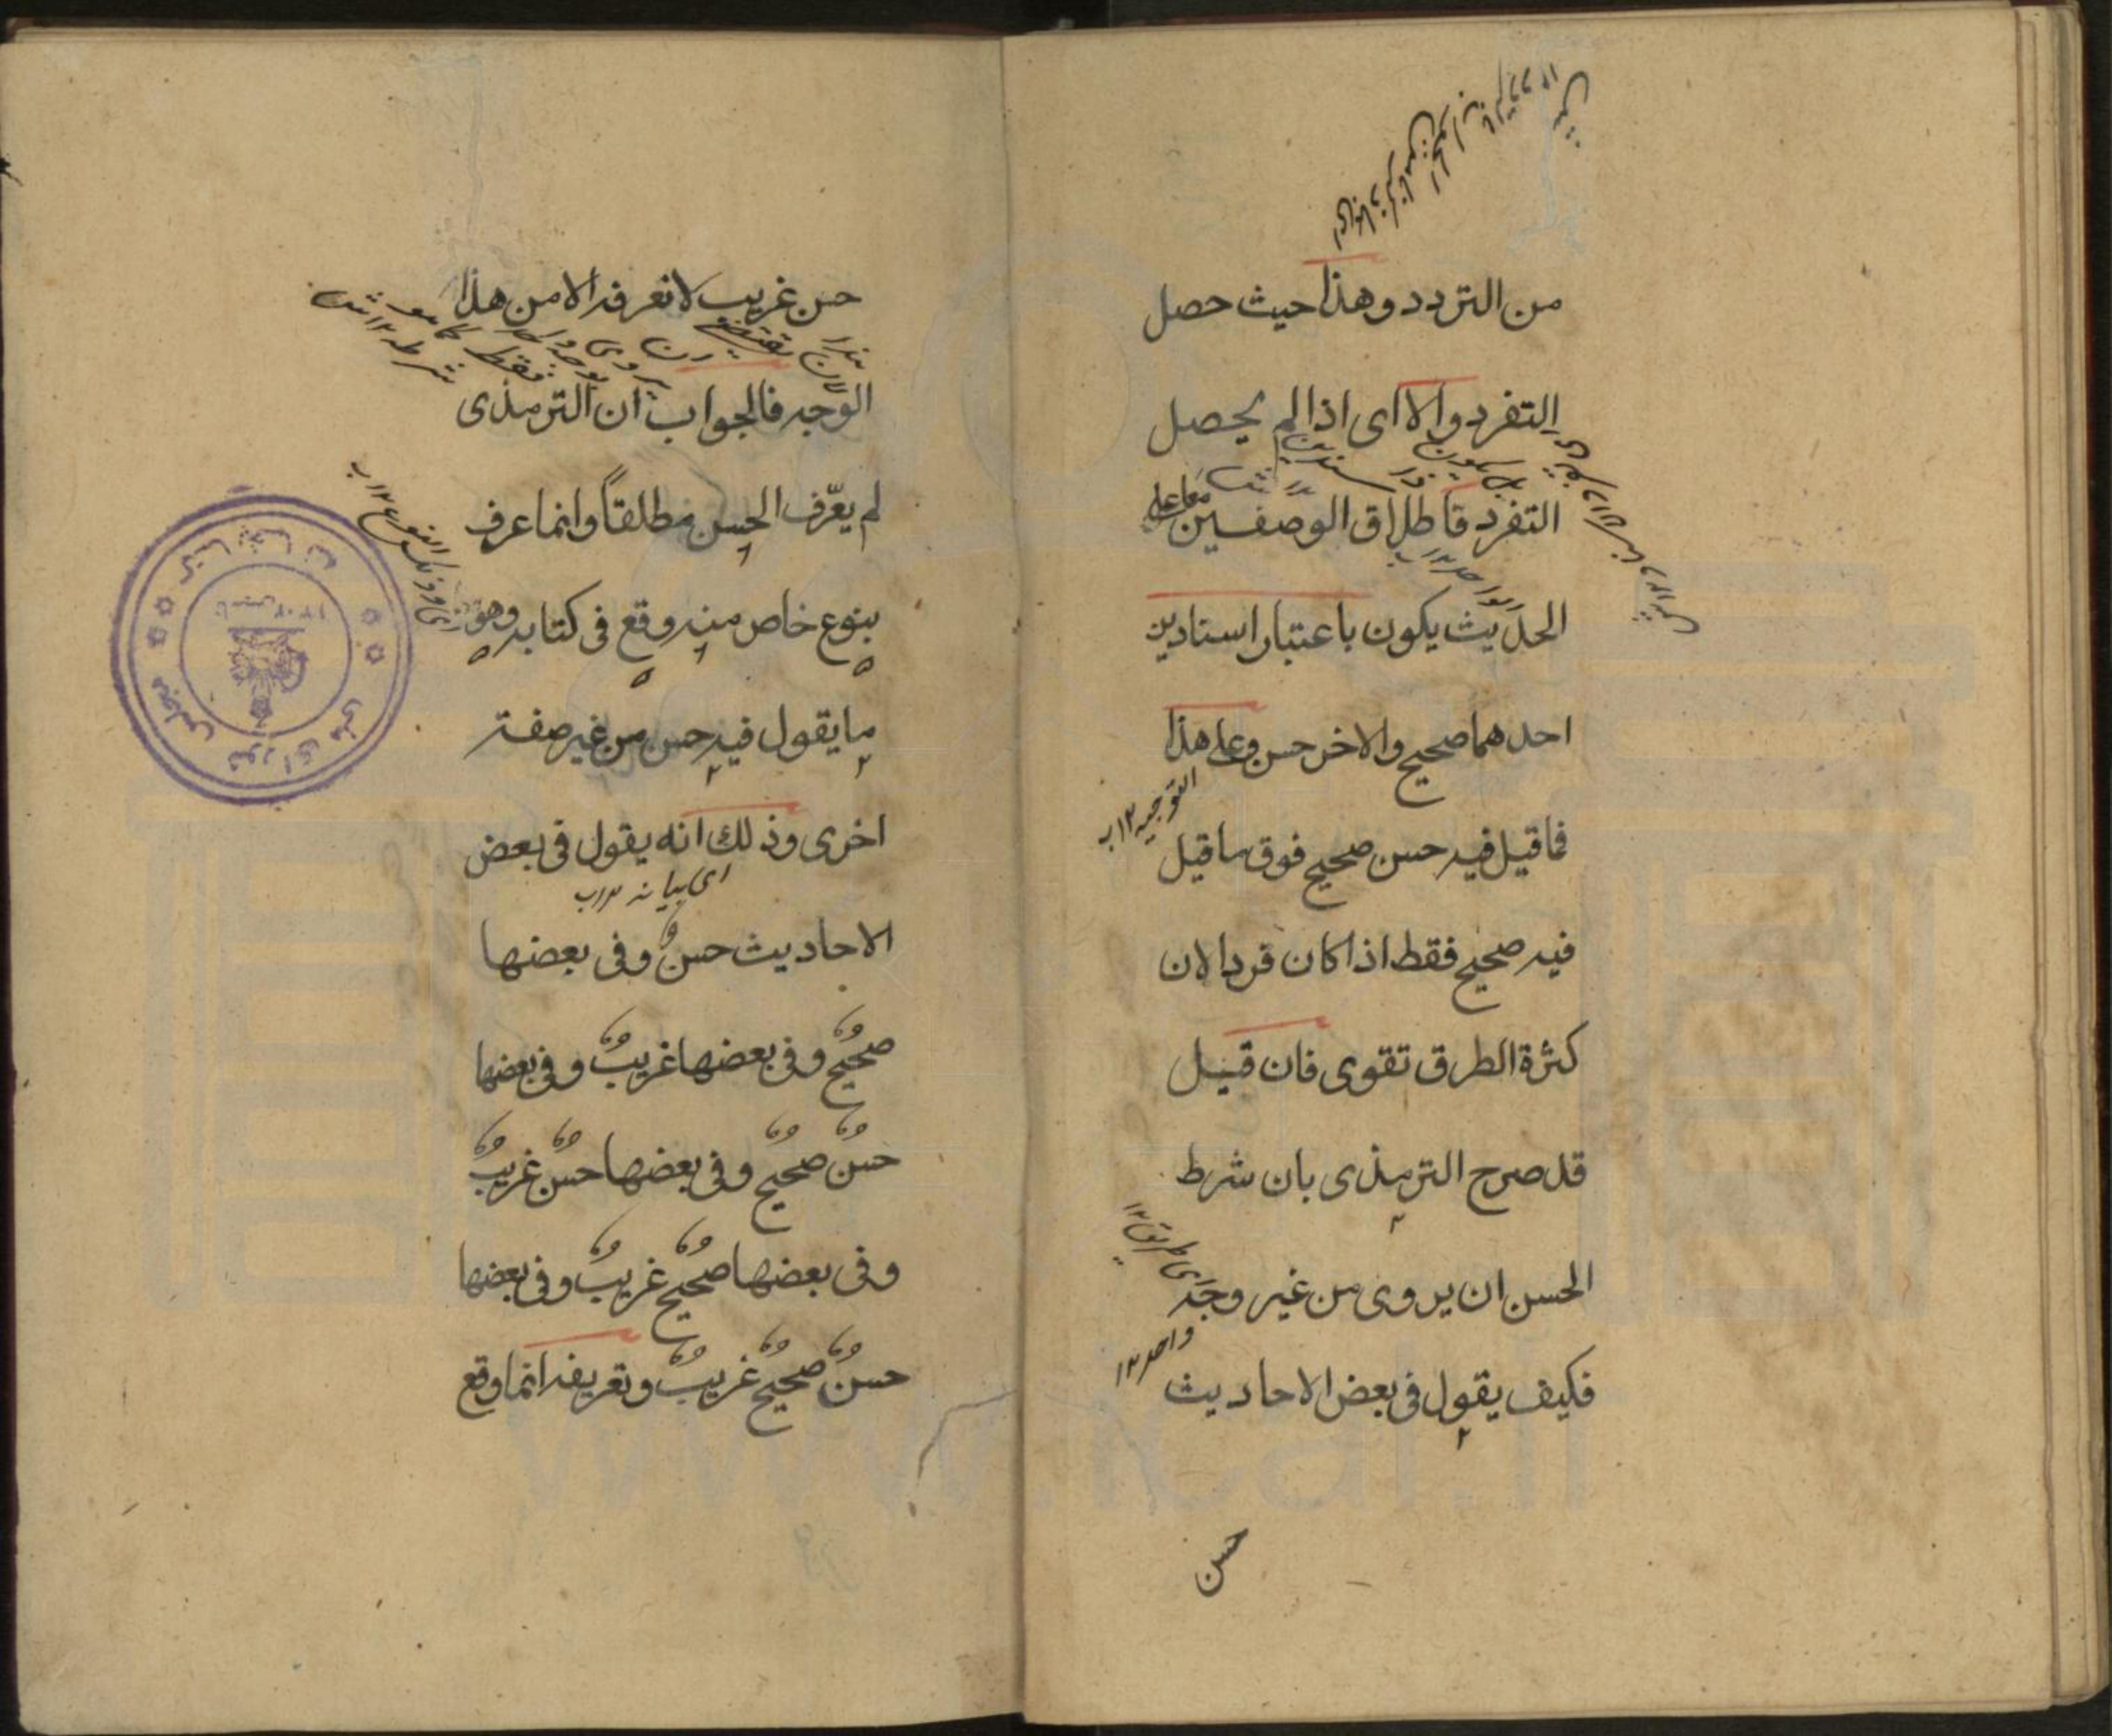 من التردد وهذا حيث حصل
التفرد والا اى اذا لم يحصل
التفرد فاطلاق الوصفين معا على
الحديث يكون باعتبار اسنادين
احدهما صحيح والاخر حسن وعلى هذا
التوجيه ١٢ ب
فما قيل فيه حسن صحيح فوق ما قيل
فيه صحيح فقط اذا كان فردا لان
كثرة الطرق تقوى فان قيل
قد صرح الترمذى بان شرط
الحسن ان يروى من غير وجه
واحد ١٢
فكيف يقول فى بعض الاحاديث
حسن
حسن غريب لا نعرفه الا من هذا
الوجه فالجواب ان الترمذى
لم يعّرف الحسن مطلقاً وانما عرف
بنوع خاص منه وقع فى كتابه وهو
ما يقول فيه حسن من غير صفة
اخرى وذلك انه يقول فى بعض
اى بيانه ١٢ ب
الاحاديث حسنٌ وفى بعضها
صحيحٌ وفى بعضها غريبٌ وفى بعضها
حسنٌ صحيحٌ وفى بعضها حسنٌ غريبٌ
وفى بعضها صحيحٌ غريبٌ وفى بعضها
حسنٌ صحيحٌ غريبٌ وتعريفه انما وقع
کتابخانه مجلس شورای ملی